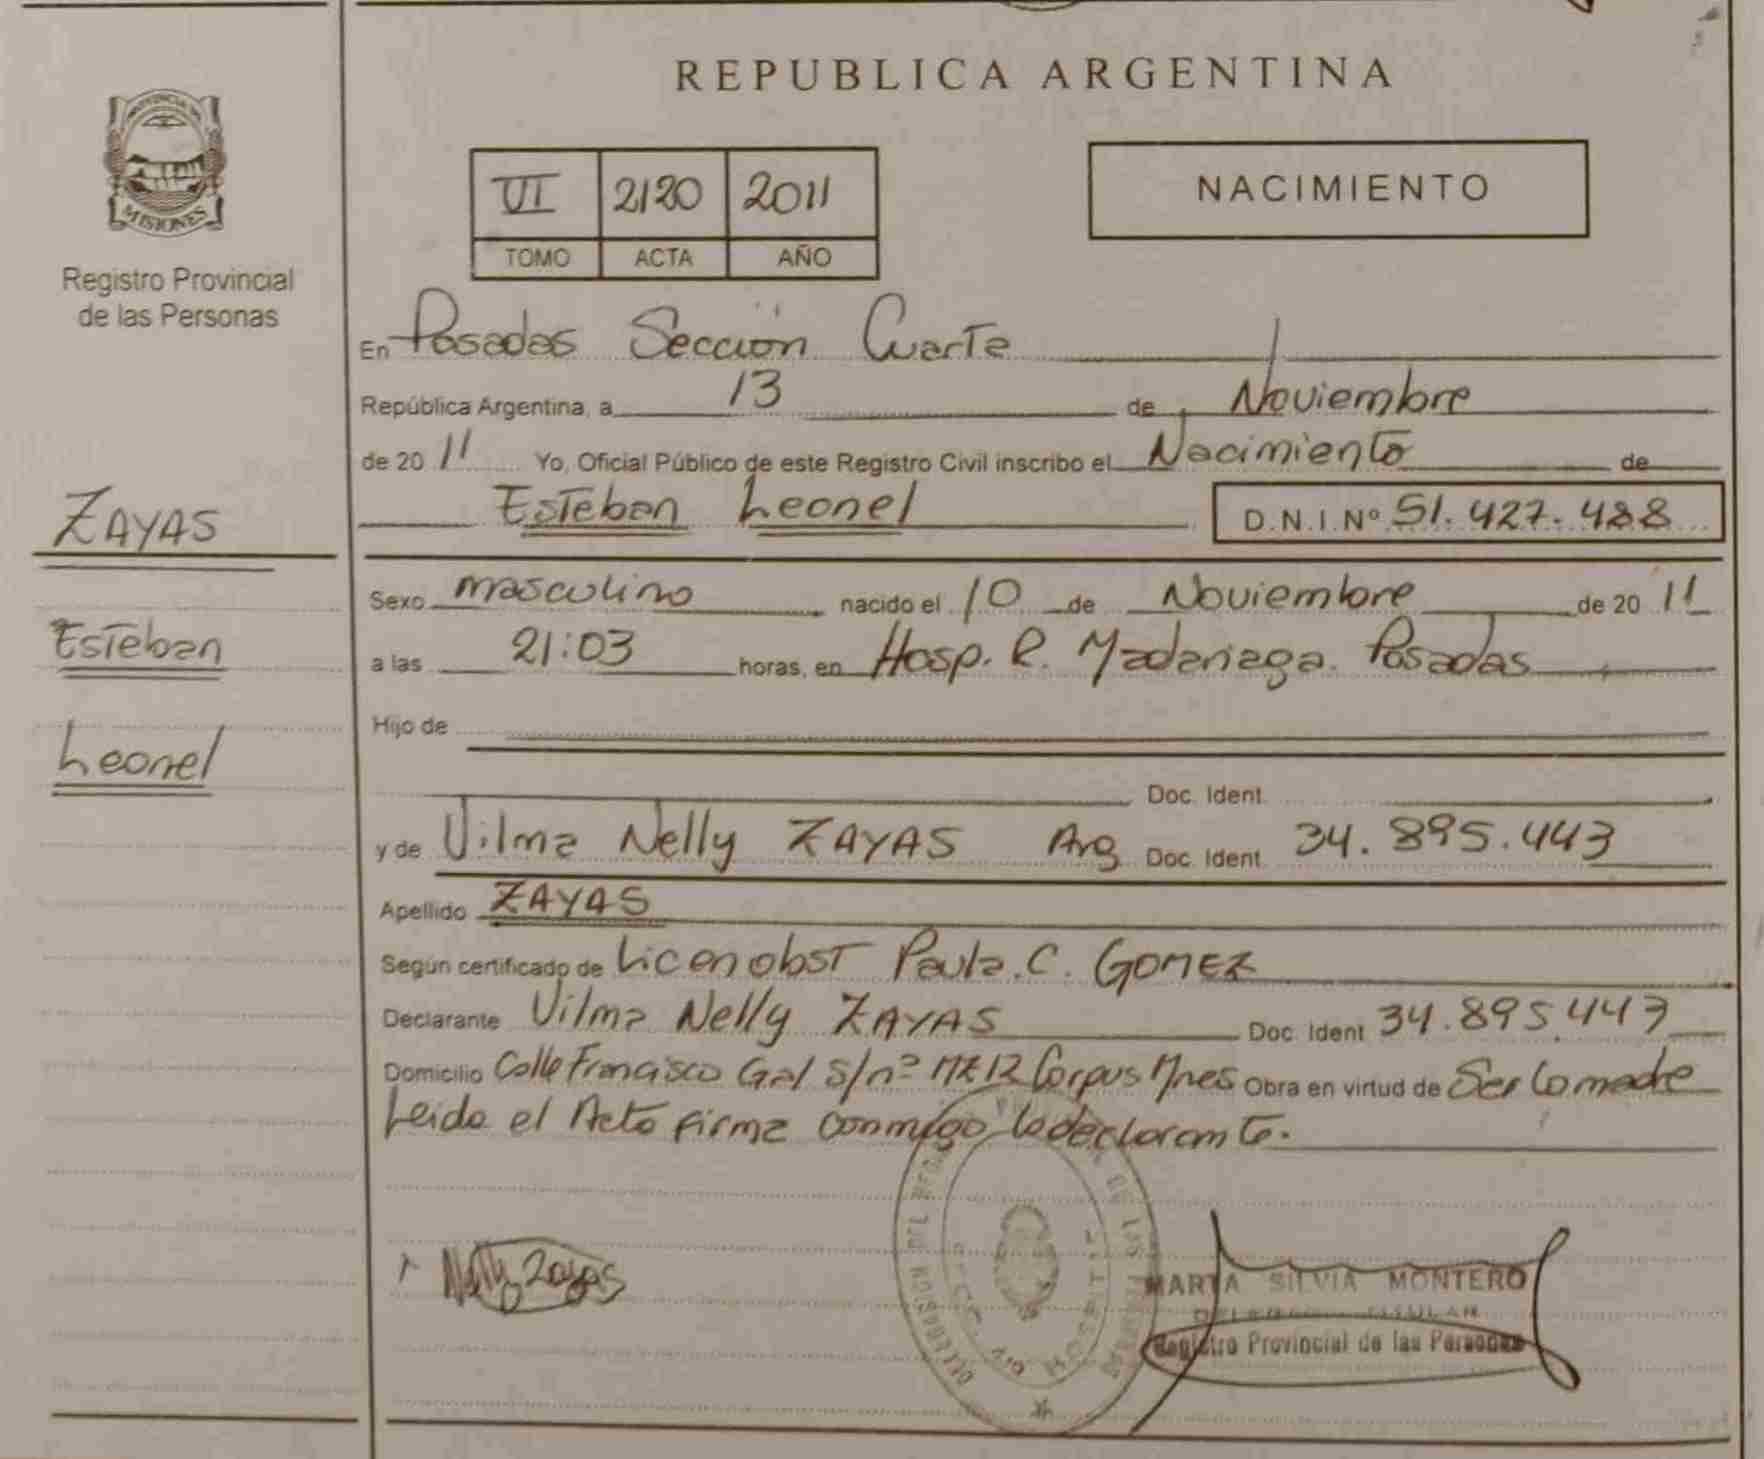 REPUBLICA ARGENTINA
PROVINCIA DE
MISIONES
Registro Provincial
de las Personas
VI 2120 2011
TOMO ACTA AÑO
NACIMIENTO
En Posadas Sección Cuarta
República Argentina, a 13 de Noviembre
de 20 11 Yo, Oficial Público de este Registro Civil inscribo el Nacimiento de
Esteban Leonel D.N.I. Nº 51.427.488
ZAYAS
Esteban
Leonel
Sexo masculino nacido el 10 de Noviembre de 20 11
a las 21:03 horas, en Hosp. R. Madariaga. Posadas
Hijo de
Doc. Ident.
y de Vilma Nelly ZAYAS Arg Doc. Ident. 34.895.443
Apellido ZAYAS
Según certificado de Licen obst Paula. C. GOMEZ
Declarante Vilma Nelly ZAYAS Doc. Ident 34.895.443
Domicilio Calle Francisco Gal S/nº MZ 12 Corpus Mnes Obra en virtud de Ser la madre
Leida el Acta firma conmigo la declarante.
Nelly Zayas
MARTA SILVIA MONTERO
TITULAR
Registro Provincial de las Personas